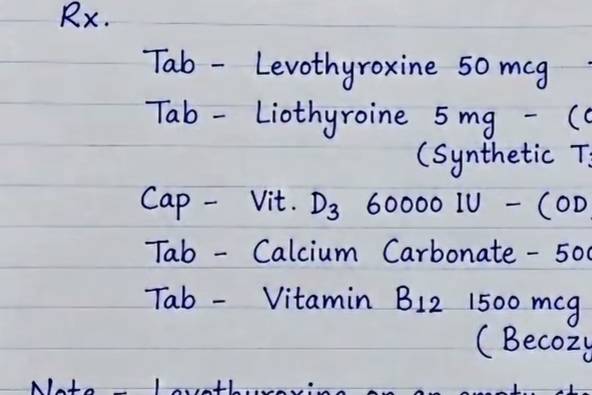 Rx.
Tab - Levothyroxine 50 mcg -
Tab - Liothyroine 5 mg - (
(Synthetic T3
Cap - Vit. D3 60000 IU - (OD
Tab - Calcium Carbonate - 500
Tab - Vitamin B12 1500 mcg
( Becozy
Note - Levothyroxine on an empty